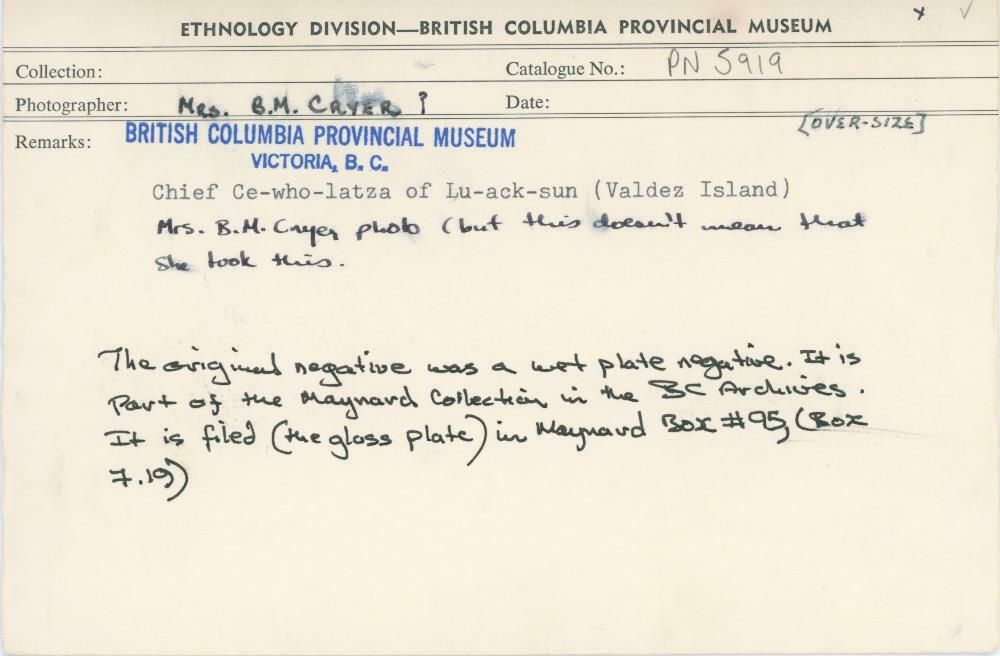 ETHNOLOGY DIVISION—BRITISH COLUMBIA PROVINCIAL MUSEUM
Collection:
Catalogue No.: PN 5919
Photographer: MRS. B.M. CRYER ?
Date:
[OVER-SIZE]
Remarks:
BRITISH COLUMBIA PROVINCIAL MUSEUM
VICTORIA, B. C.
Chief Ce-who-latza of Lu-ack-sun (Valdez Island)
Mrs. B.M. Cryer photo (but this doesn't mean that
she took this.
The original negative was a wet plate negative. It is
Part of the Maynard Collection in the BC Archives.
It is filed (the glass plate) in Maynard Box #95, (Box
7.19)